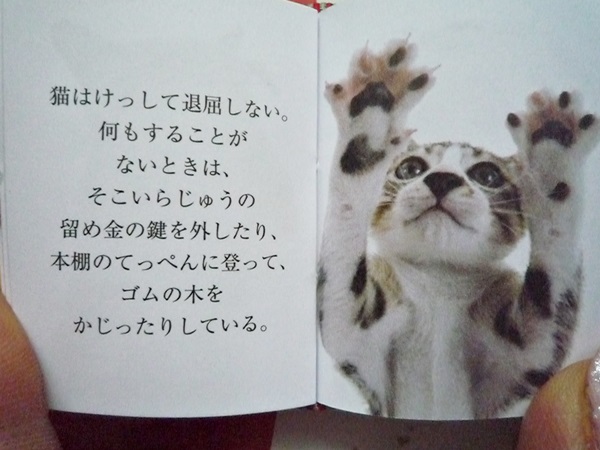 猫はけっして退屈しない。
何もすることが
ないときは、
そこいらじゅうの
留め金の鍵を外したり、
本棚のてっぺんに登って、
ゴムの木を
かじったりしている。